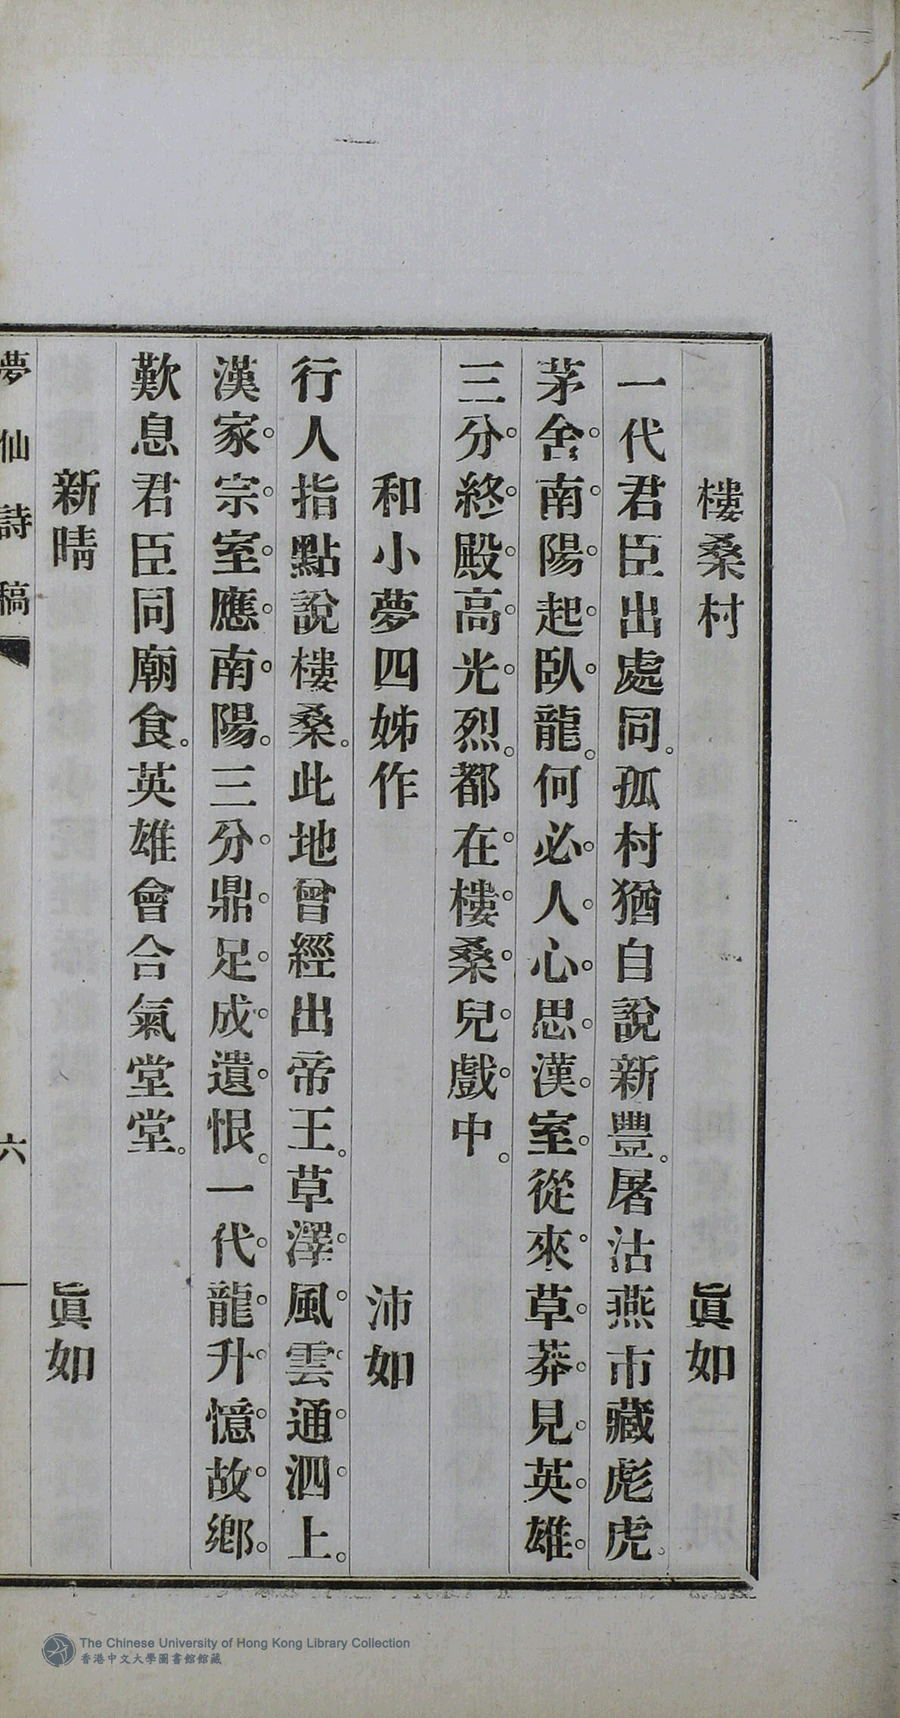 樓桑村 眞如
一代君臣出處同。孤村猶自說新豐。屠沽燕市藏彪虎。
茅舍南陽起臥龍。何必人心思漢室。從來草莽見英雄。
三分終殿高光烈。都在樓桑兒戲中。
和小夢四姊作 沛如
行人指點說樓桑。此地曾經出帝王。草澤風雲通泗上。
漢家宗室應南陽。三分鼎足成遺恨。一代龍升憶故鄉。
歎息君臣同廟食。英雄會合氣堂堂。
新晴 眞如
夢仙詩稿 六
The Chinese University of Hong Kong Library Collection
香港中文大學圖書館館藏